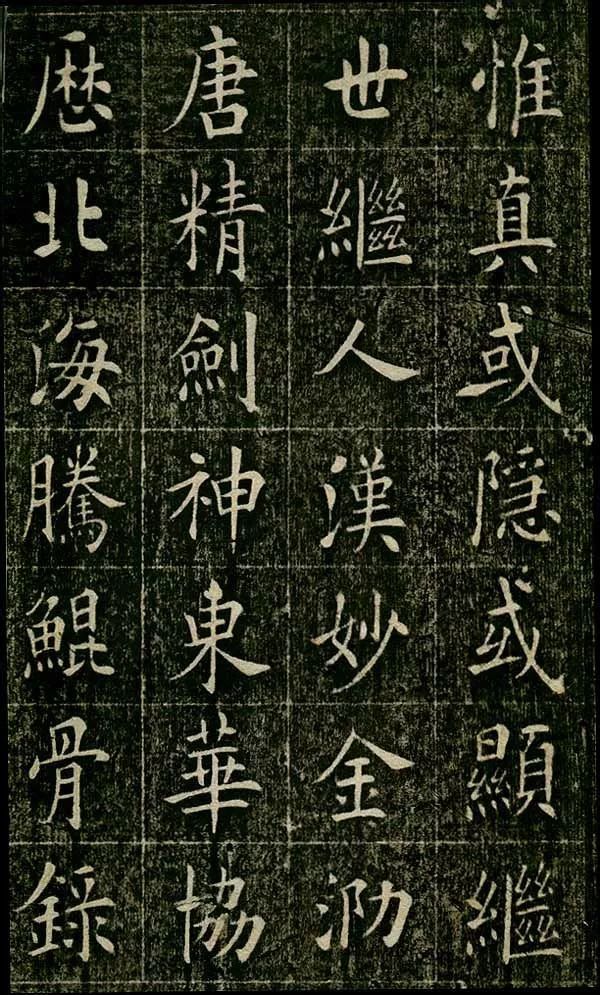 惟真或隱或顯繼
世繼人漢妙金泐
唐精劍神東華協
歷北海騰鯤骨錄